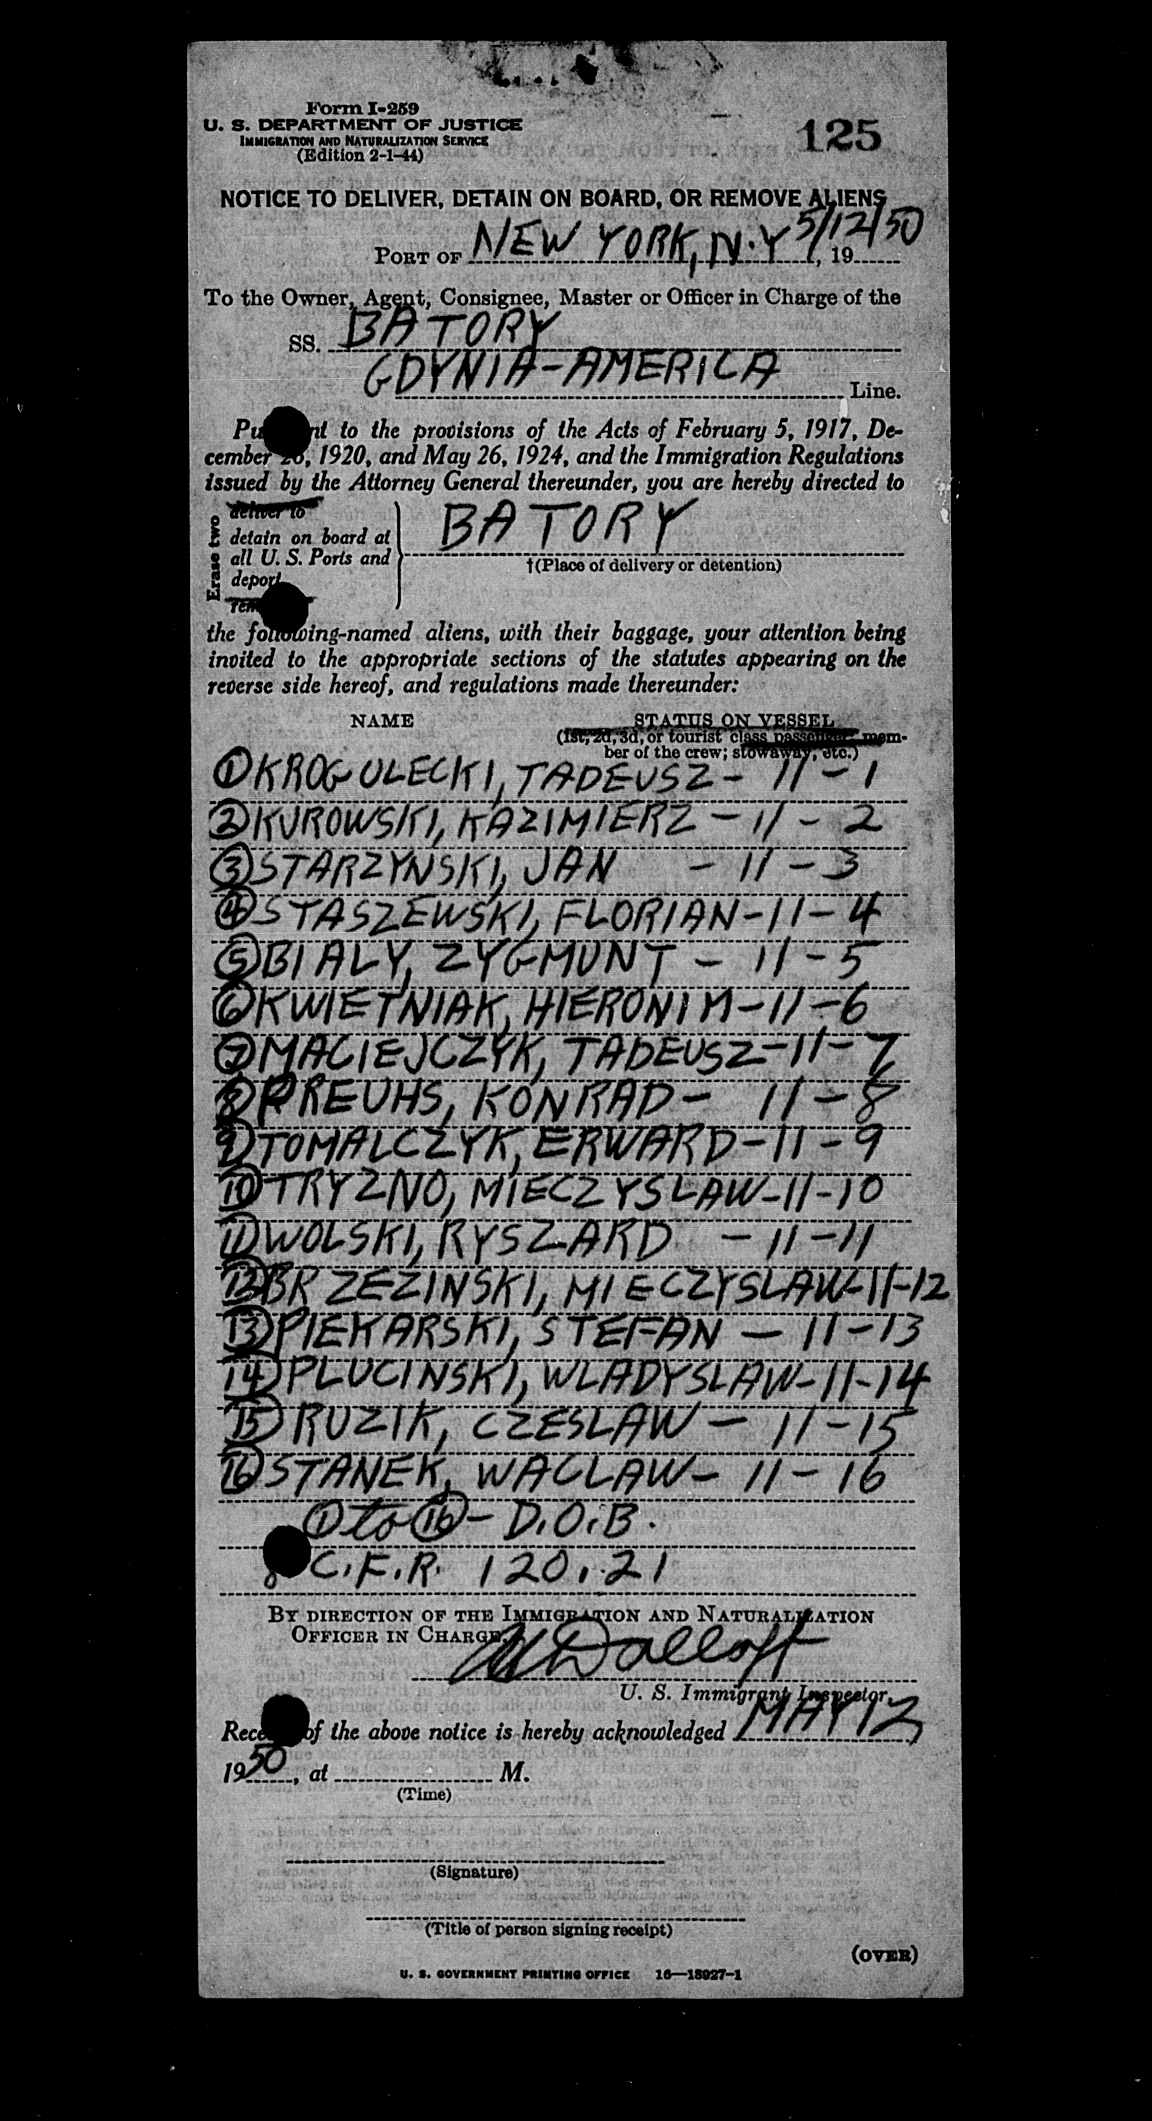 Form I-259
U. S. DEPARTMENT OF JUSTICE
IMMIGRATION AND NATURALIZATION SERVICE
(Edition 2-1-44)
125
NOTICE TO DELIVER, DETAIN ON BOARD, OR REMOVE ALIENS
PORT OF NEW YORK, N.Y 5/12/50, 19
To the Owner, Agent, Consignee, Master or Officer in Charge of the
SS. BATORY
GDYNIA-AMERICA Line.
to the provisions of the Acts of February 5, 1917, De-
cember 26, 1920, and May 26, 1924, and the Immigration Regulations
issued by the Attorney General thereunder, you are hereby directed to
Erase two
deliver to
detain on board at
all U. S. Ports and
deport
BATORY
†(Place of delivery or detention)
the following-named aliens, with their baggage, your attention being
invited to the appropriate sections of the statutes appearing on the
reverse side hereof, and regulations made thereunder:
NAME STATUS ON VESSEL
(1st, 2d, 3d, or tourist class passenger, mem-
ber of the crew; stowaway, etc.)
① KROGULECKI, TADEUSZ - 11 - 1
② KUROWSKI, KAZIMIERZ - 11 - 2
③ STARZYNSKI, JAN - 11 - 3
④ STASZEWSKI, FLORIAN - 11 - 4
⑤ BIALY, ZYGMUNT - 11 - 5
⑥ KWIETNIAK, HIERONIM - 11 - 6
⑦ MACIEJCZYK, TADEUSZ - 11 - 7
⑧ PREUHS, KONRAD - 11 - 8
⑨ TOMALCZYK, ERWARD - 11 - 9
⑩ TRYZNO, MIECZYSLAW - 11 - 10
⑪ WOLSKI, RYSZARD - 11 - 11
⑫ BRZEZINSKI, MIECZYSLAW - 11 - 12
⑬ PIEKARSKI, STEFAN - 11 - 13
⑭ PLUCINSKI, WLADYSLAW - 11 - 14
⑮ RUZIK, CZESLAW - 11 - 15
⑯ STANEK, WACLAW - 11 - 16
① to ⑯ - D.O.B.
C.F.R. 120.21
BY DIRECTION OF THE IMMIGRATION AND NATURALIZATION
OFFICER IN CHARGE,
U. S. Immigrant Inspector.
of the above notice is hereby acknowledged MAY 12,
1950, at M.
(Time)
(Signature)
(Title of person signing receipt)
(OVER)
U. S. GOVERNMENT PRINTING OFFICE 16—18927-1